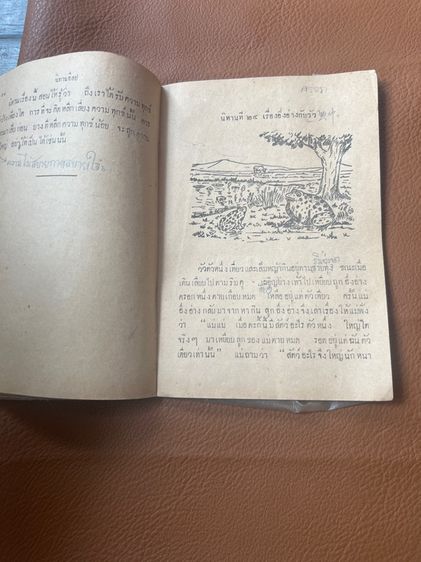 นิทานอีสป
นิทานเรื่องนี้ สอนให้รู้ว่า ถึงเราได้รับความทุกข์
การที่จะคิดหลีกเลี่ยงความทุกข์นั้น
ความทุกข์น้อย จะถูกความ
นิทานที่ ๒๔ เรื่องอึ่งอ่างกับวัว
วัวตัวหนึ่งเที่ยวและเล็มหญ้ากินอยู่ตามชายทุ่ง ขณะเมื่อ
เดินเลียบไปตามริมคู เผอิญย่างเท้าไปเหยียบถูก อึ่งอ่าง
ครอกหนึ่งตายเกือบหมด เหลืออยู่แต่ตัวเดียว ครั้นแม่
อึ่งอ่างกลับมาจากหากิน ลูกอึ่งอ่างจึงเล่าเรื่องให้แม่ฟัง
ว่า "แม่แม่ เมื่อตะกี้นี้มีสัตว์อะไรตัวหนึ่ง ใหญ่โต
จริงๆ มาเหยียบลูกของแม่ตายหมด รอดอยู่แต่ฉันตัว
เดียวเท่านั้น" แม่ถามว่า "สัตว์อะไรจึงใหญ่นักหนา